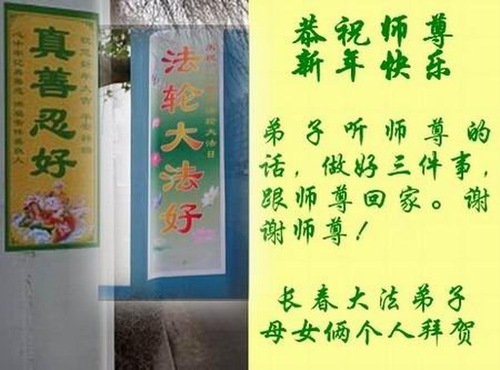 真善忍好
法轮大法好
恭祝师尊
新年快乐
弟子听师尊的
话，做好三件事，
跟师尊回家。谢
谢师尊！
长春大法弟子
母女俩个人拜贺